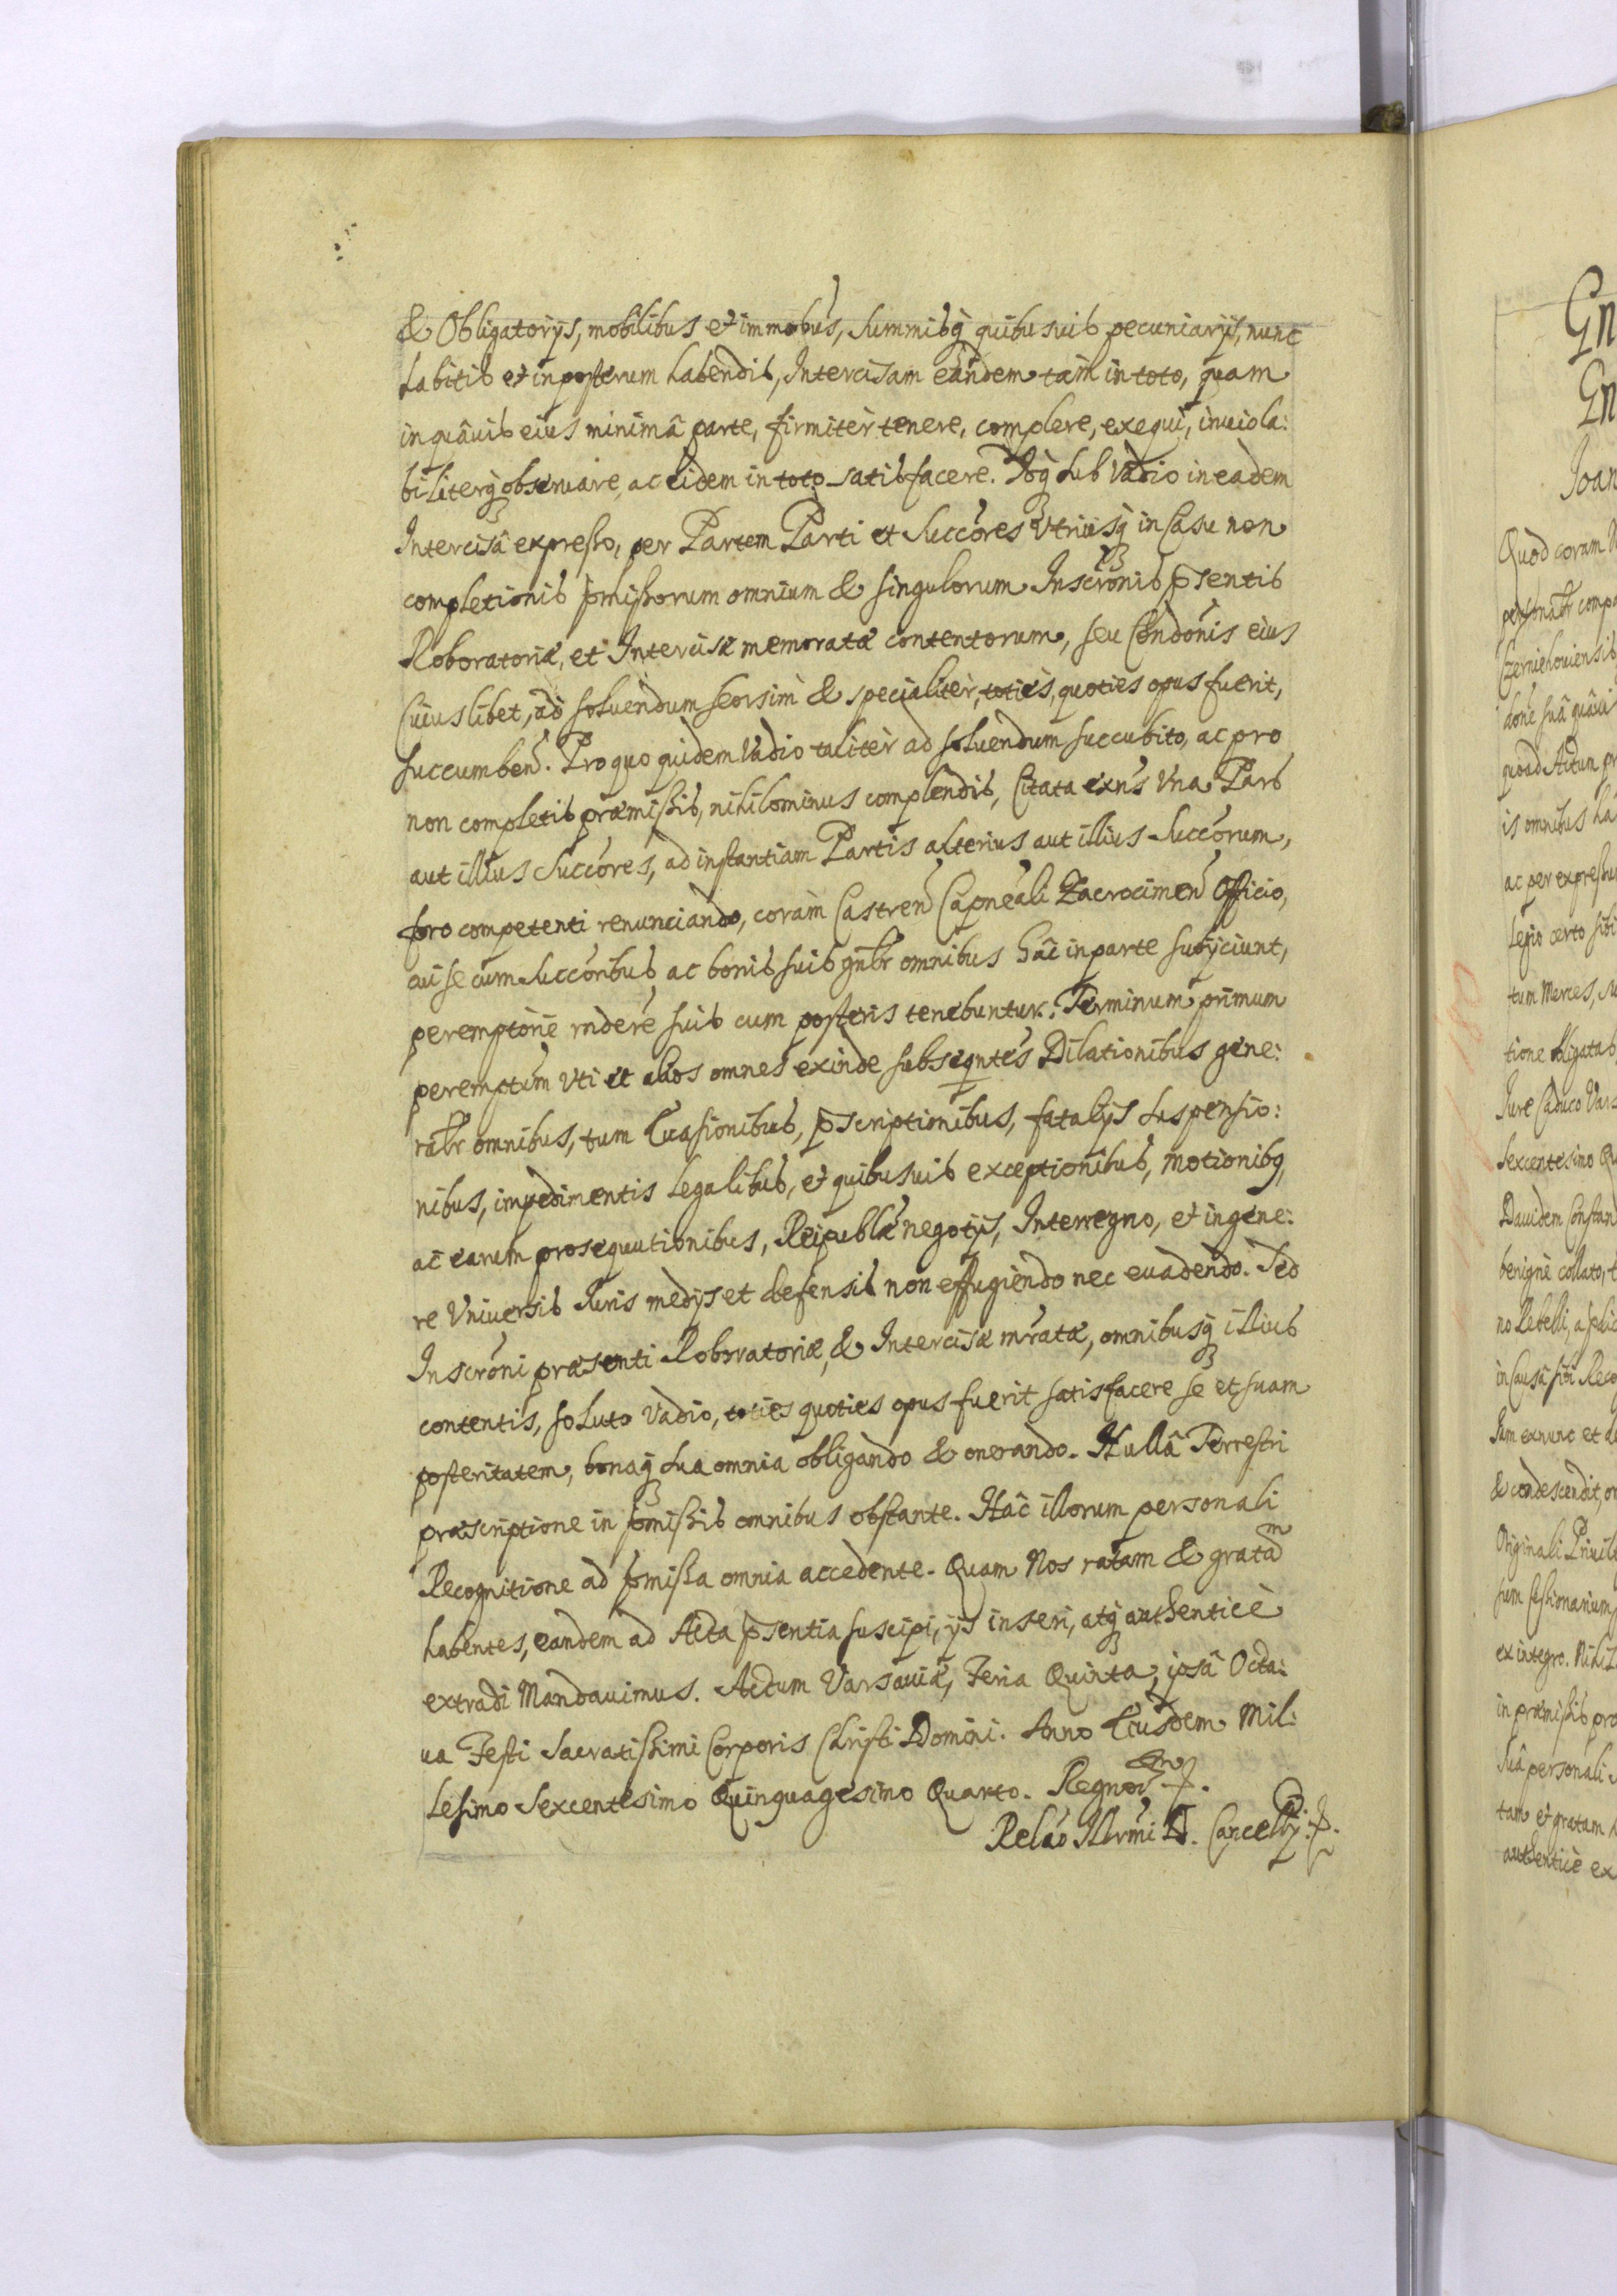 & Obligatorijs, mobilibus et immobus, summisq quibusuis pecuniarijs, nunc
habitis et in posterum habendis, Intercisam eandem tam in toto, quam
in quâuis eius minimâ parte, firmitèr tenere, complere, exequi, inuiola:
biliterq obseruare, ac eidem in toto satisfacere. Idq sub Vadio in eadem
Intercisâ expresso, per Partem Parti et Succores Vtriusq in Casu non
completionis pmissorum omnium & singulorum Inscronis psentis
Roboratoriæ, et Intercisæ memoratæ contentorum, seu Condonis eius
Cuiuslibet, ad soluendum seorsim & specialitèr, toties, quoties opus fuerit,
succumben. Pro quo quidem Vadio talitèr ad soluendum succubito, ac pro
non completis præmissis, nihilominus complendis, Citata exns Vna Pars
aut illius Succores, ad instantiam Partis alterius aut illius Succorum,
foro competenti renunciando, coràm Castren Capneali Zacrocimen Officio,
cui se cum Succoribus ac bonis suis gnlr omnibus hâc in parte subijciunt,
peremptorie rndere suis cum posteris tenebuntur. Terminum primum
peremptum vti et alios omnes exinde subseqntes Dilationibus gene:
ralr omnibus, tum Euasionibus, pscriptionibus, fatalijs suspensio:
nibus, impedimentis Legalibus, et quibusuis exceptionibus, motionibq,
ac earum prosequutionibus, Reipublæ negotijs, Interregno, et in gene:
re Vniuersis Iuris medijs et defensis non effugiendo nec euadendo. Sed
Inscroni præsenti Roboratoriæ, & Intercisæ mratæ, omnibusq illius
contentis, soluto Vadio, toties quoties opus fuerit satisfacere se et suam
posteritatem, bonaq sua omnia obligando & onerando. Nullâ Terrestri
præscriptione in pmissis omnibus obstante. Hâc illorum personali
Recognitione ad pmissa omnia accedente. Quam Nos ratam & gratam
habentes, eandem ad Acta psentia suscipi, ijs inseri, atq authenticè
extradi Mandauimus. Actum Varsauiæ, Feria Quinta, ipsâ Octa:
ua Festi Sacratissimi Corporis Christi Domini. Anno Eiusdem Mil:
Lesimo Sexcentesimo Quinquagesimo Quarto. Regnor
Relao Illrmi D. Cancellrij.